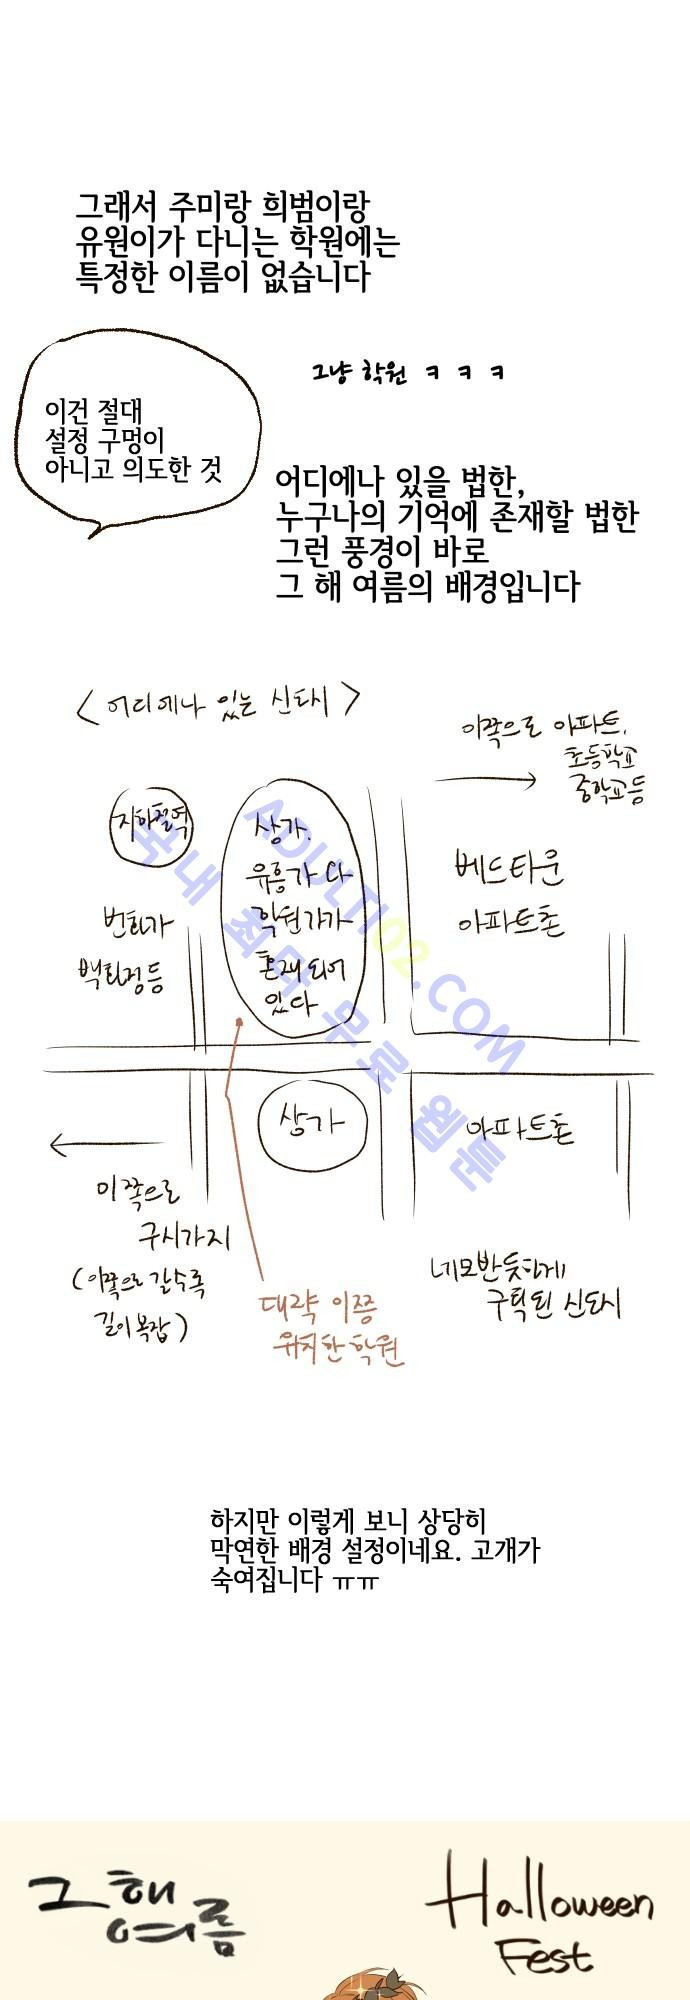 그래서 주미랑 희범이랑
유원이가 다니는 학원에는
특정한 이름이 없습니다
그냥 학원 ㅋ ㅋ ㅋ
이건 절대
설정 구멍이
아니고 의도한 것
어디에나 있을 법한,
누구나의 기억에 존재할 법한
그런 풍경이 바로
그 해 여름의 배경입니다
< 어디에나 있는 신도시 >
이쪽으로 아파트,
초등학교
중학교등
지하철역
상가.
유흥가 다
학원가가
혼재되어
있다
베드타운
아파트촌
번화가
백화점등
ADULTI02.COM
국내 최다 무료 웹툰
상가
아파트촌
이쪽으로
구시가지
(이쪽으로 갈수록
길이 복잡)
네모반듯하게
구획된 신도시
대략 이쯤
위치한 학원
하지만 이렇게 보니 상당히
막연한 배경 설정이네요. 고개가
숙여집니다 ㅠㅠ
그 해
여름
Halloween
Fest